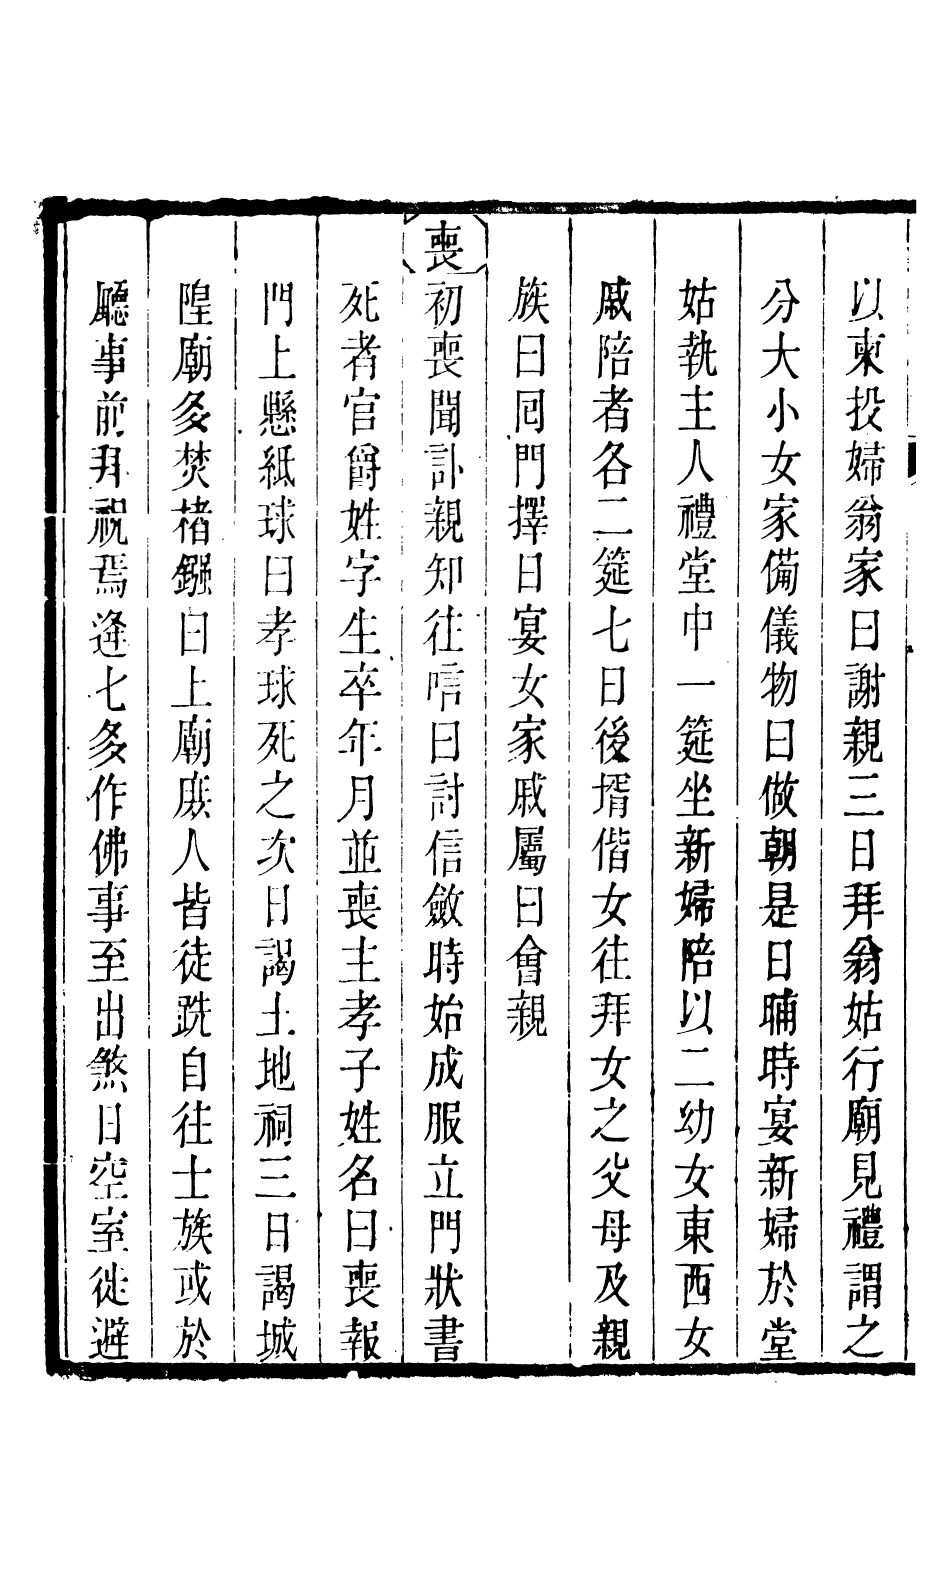 以柬投婦翁家曰謝親三日拜翁姑行廟見禮謂之
分大小女家備儀物曰做朝是日晡時宴新婦於堂
姑執主人禮堂中一筵坐新婦陪以二幼女東西女
戚陪者各二筵七日後壻偕女往拜女之父母及親
族曰囘門擇日宴女家戚屬曰會親
喪初喪聞訃親知往唁曰討信斂時始成服立門狀書
死者官爵姓字生卒年月並喪主孝子姓名曰喪報
門上懸紙球曰孝球死之次日謁土地祠三日謁城
隍廟多焚楮鏹曰上廟庶人皆徒跣自往士族或於
廳事前拜祝焉逢七多作佛事至出煞日空室徙避